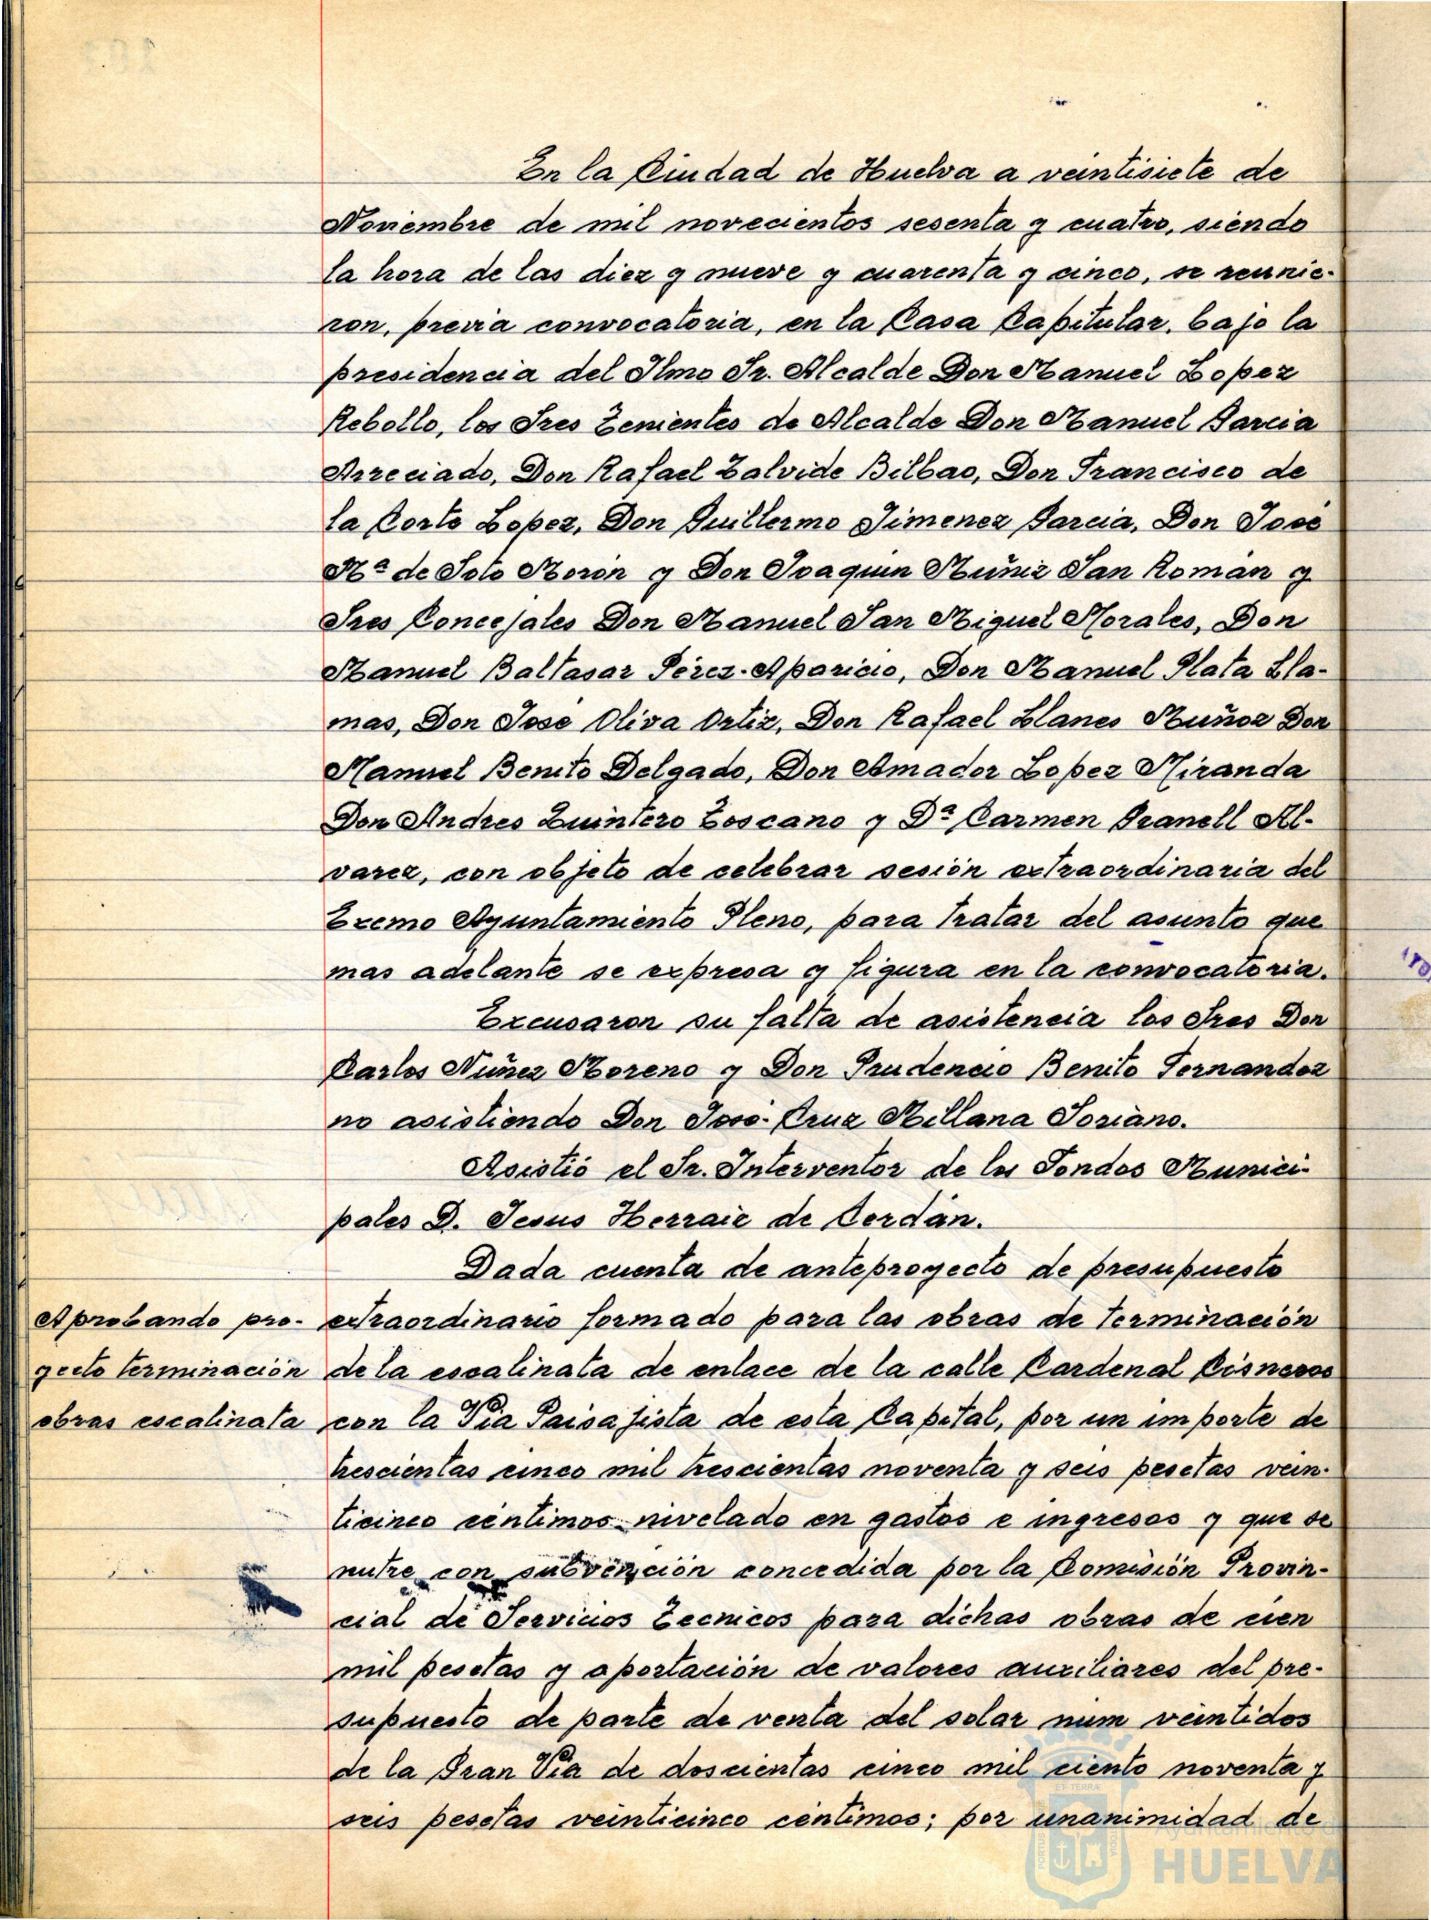 En la Ciudad de Huelva a veintisiete de
Noviembre de mil novecientos sesenta y cuatro, siendo
la hora de las diez y nueve y cuarenta y cinco, se reunie-
ron, previa convocatoria, en la Casa Capitular, bajo la
presidencia del Ilmo Sr. Alcalde Don Manuel Lopez
Rebollo, los Sres Tenientes de Alcalde Don Manuel Garcia
Arreciado, Don Rafael Zalvide Bilbao, Don Francisco de
la Corte Lopez, Don Guillermo Jimenez Garcia, Don José
Mª de Soto Morón y Don Joaquin Muñiz San Román y
Sres Concejales Don Manuel San Miguel Morales, Don
Manuel Baltasar Pérez-Aparicio, Don Manuel Plata Lla-
mas, Don José Oliva Ortiz, Don Rafael Llanes Muñoz Don
Manuel Benito Delgado, Don Amador Lopez Miranda
Don Andres Quintero Toscano y Dª Carmen Granell Al-
varez, con objeto de celebrar sesión extraordinaria del
Excmo Ayuntamiento Pleno, para tratar del asunto que
mas adelante se expresa y figura en la convocatoria.
Excusaron su falta de asistencia los Sres Don
Carlos Nuñez Moreno y Don Prudencio Benito Fernandez
no asistiendo Don José-Cruz Millana Soriano.
Asistió el Sr. Interventor de los Fondos Munici-
pales D. Jesus Herraiz de Cerdán.
Dada cuenta de anteproyecto de presupuesto
Aprobando pro-
yecto terminación
obras escalinata
extraordinario formado para las obras de terminación
de la escalinata de enlace de la calle Cardenal Cisneros
con la Via Paisajista de esta Capital, por un importe de
trescientas cinco mil trescientas noventa y seis pesetas vein-
ticinco céntimos nivelado en gastos e ingresos y que se
nutre con subvención concedida por la Comisión Provin-
cial de Servicios Tecnicos para dichas obras de cien
mil pesetas y aportación de valores auxiliares del pre-
supuesto de parte de venta del solar num veintidos
de la Gran Via de doscientas cinco mil ciento noventa y
seis pesetas veinticinco céntimos; por unanimidad de
Ayuntamiento de
HUELVA